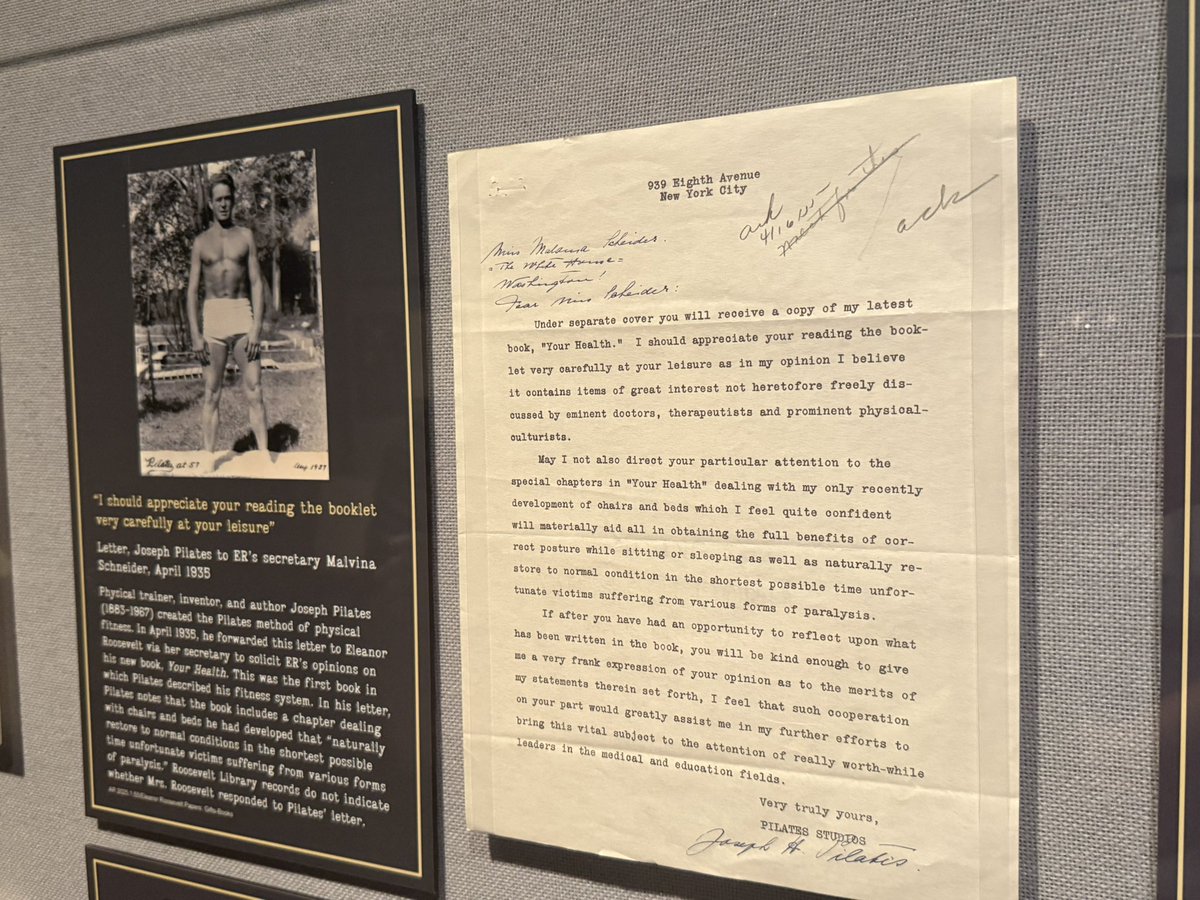 Pilates at 57 Aug 1937
“I should appreciate your reading the booklet
very carefully at your leisure”
Letter, Joseph Pilates to ER’s secretary Malvina
Schneider, April 1935
Physical trainer, inventor, and author Joseph Pilates
(1883-1967) created the Pilates method of physical
fitness. In April 1935, he forwarded this letter to Eleanor
Roosevelt via her secretary to solicit ER’s opinions on
his new book, Your Health. This was the first book in
which Pilates described his fitness system. In his letter,
Pilates notes that the book includes a chapter dealing
with chairs and beds he had developed that “naturally
restore to normal conditions in the shortest possible
time unfortunate victims suffering from various forms
of paralysis.” Roosevelt Library records do not indicate
whether Mrs. Roosevelt responded to Pilates’ letter.
Eleanor Roosevelt Papers: Gifts-Books
939 Eighth Avenue
New York City
ack
4/16/35
ack
Miss Malvina Scheider.
=The White House=
Washington!
Dear Miss Scheider:
Under separate cover you will receive a copy of my latest
book, "Your Health." I should appreciate your reading the book-
let very carefully at your leisure as in my opinion I believe
it contains items of great interest not heretofore freely dis-
cussed by eminent doctors, therapeutists and prominent physical-
culturists.
May I not also direct your particular attention to the
special chapters in "Your Health" dealing with my only recently
development of chairs and beds which I feel quite confident
will materially aid all in obtaining the full benefits of cor-
rect posture while sitting or sleeping as well as naturally re-
store to normal condition in the shortest possible time unfor-
tunate victims suffering from various forms of paralysis.
If after you have had an opportunity to reflect upon what
has been written in the book, you will be kind enough to give
me a very frank expression of your opinion as to the merits of
my statements therein set forth, I feel that such cooperation
on your part would greatly assist me in my further efforts to
bring this vital subject to the attention of really worth-while
leaders in the medical and education fields.
Very truly yours,
PILATES STUDIOS
Joseph H. Pilates.